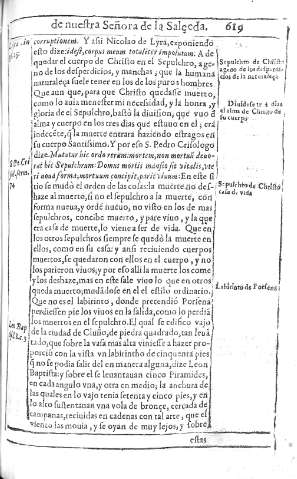 de nuestra Señora de la Saleeda. 619
corruptionem. Y assi Nicolao de Lyra, exponiendo
esto dize: idest, corpus meum totaliter impolutum. A
quedar el cuerpo de Christo en el Sepulchro, age-
no de los desperdicios, y manchas, que la humana
naturaleza suele tener en los de los puros hombres
Que aun que, para que Christo quedasse muerto,
como lo auia menester mi necessidad, y la honra, y
gloria de el Sepulchro, bastò la diuision, que vuo de
alma y cuerpo en los tres dias que estuuo en el; era
indecēte, q̃ la muerte entrara haziendo estragos en
su cuerpo Santissimo. Y por eso S. Pedro Crisologo
dize: Mutatur hic ordo rerum: mortem, non mortuũ deuo-
rat hic Sepulchrum: Domus mortis mansio fit vitalis,
noua forma, mortuum concipit, parit viuum: En este si
tio se mudó el orden de las cosas: la muerte no des-
haze al muerto, si no el sepulchro a la muerte, con
forma nueua, y orden nueuo, no visto en los de mas
sepulchros, concibe muerto, y pare viuo, y la que
era casa de muerte, lo viene a ser de vida. Que en
los otros sepulchros siempre se quedò la muerte en
ellos, como en su casa: y ansi reciuiendo cuerpos
muertos, se quedaron con ellos en el cuerpo, y no
los parieron viuos; y por eso alli la muerte los come
y los deshaze, mas en este sale viuo lo que en otros
queda muerto; mudādose en el el estilo ordinario.
Que no es el labirinto, donde pretendiò Porsena
perdiessen pie los viuos en la salida, como lo perdiā
los muertos en el sepulchro. El qual se edifico vajo
de la ciudad de Clusio, de piedra quadrado, tan leuā
tado, que sobre la vasa mas alta viniesse a hazer pro-
posiciō con la vista vn labirintho de cinquanta pies
q̃ no se podia salir del en manera alguna, dize Leon
Baptista: y sobre el se leuantauan cinco Piramides,
en cada angulo vna, y otra en medio; la anchura de
las quales en lo vajo tenia setenta y cinco pies, y en
lo alto sustentauan vna vola de bronce, cercada de
campanas, reciuidas en cadenas con tal arte, que el
viento las mouia, y se oyan de muy lejos; y sobre
estas
Sepulchro de Christo
ageno de los desperdi-
cios de la naturaleza
Diuidese tres dias
el alma de Christo de
su cuerpo
Sepulchro de Christo
casa de vida
Labirinto de Porsena